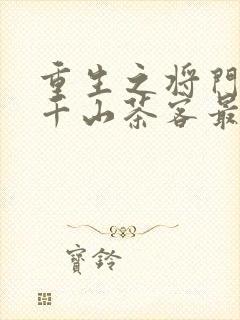 重生之将門
千山茶客最
寶鈴